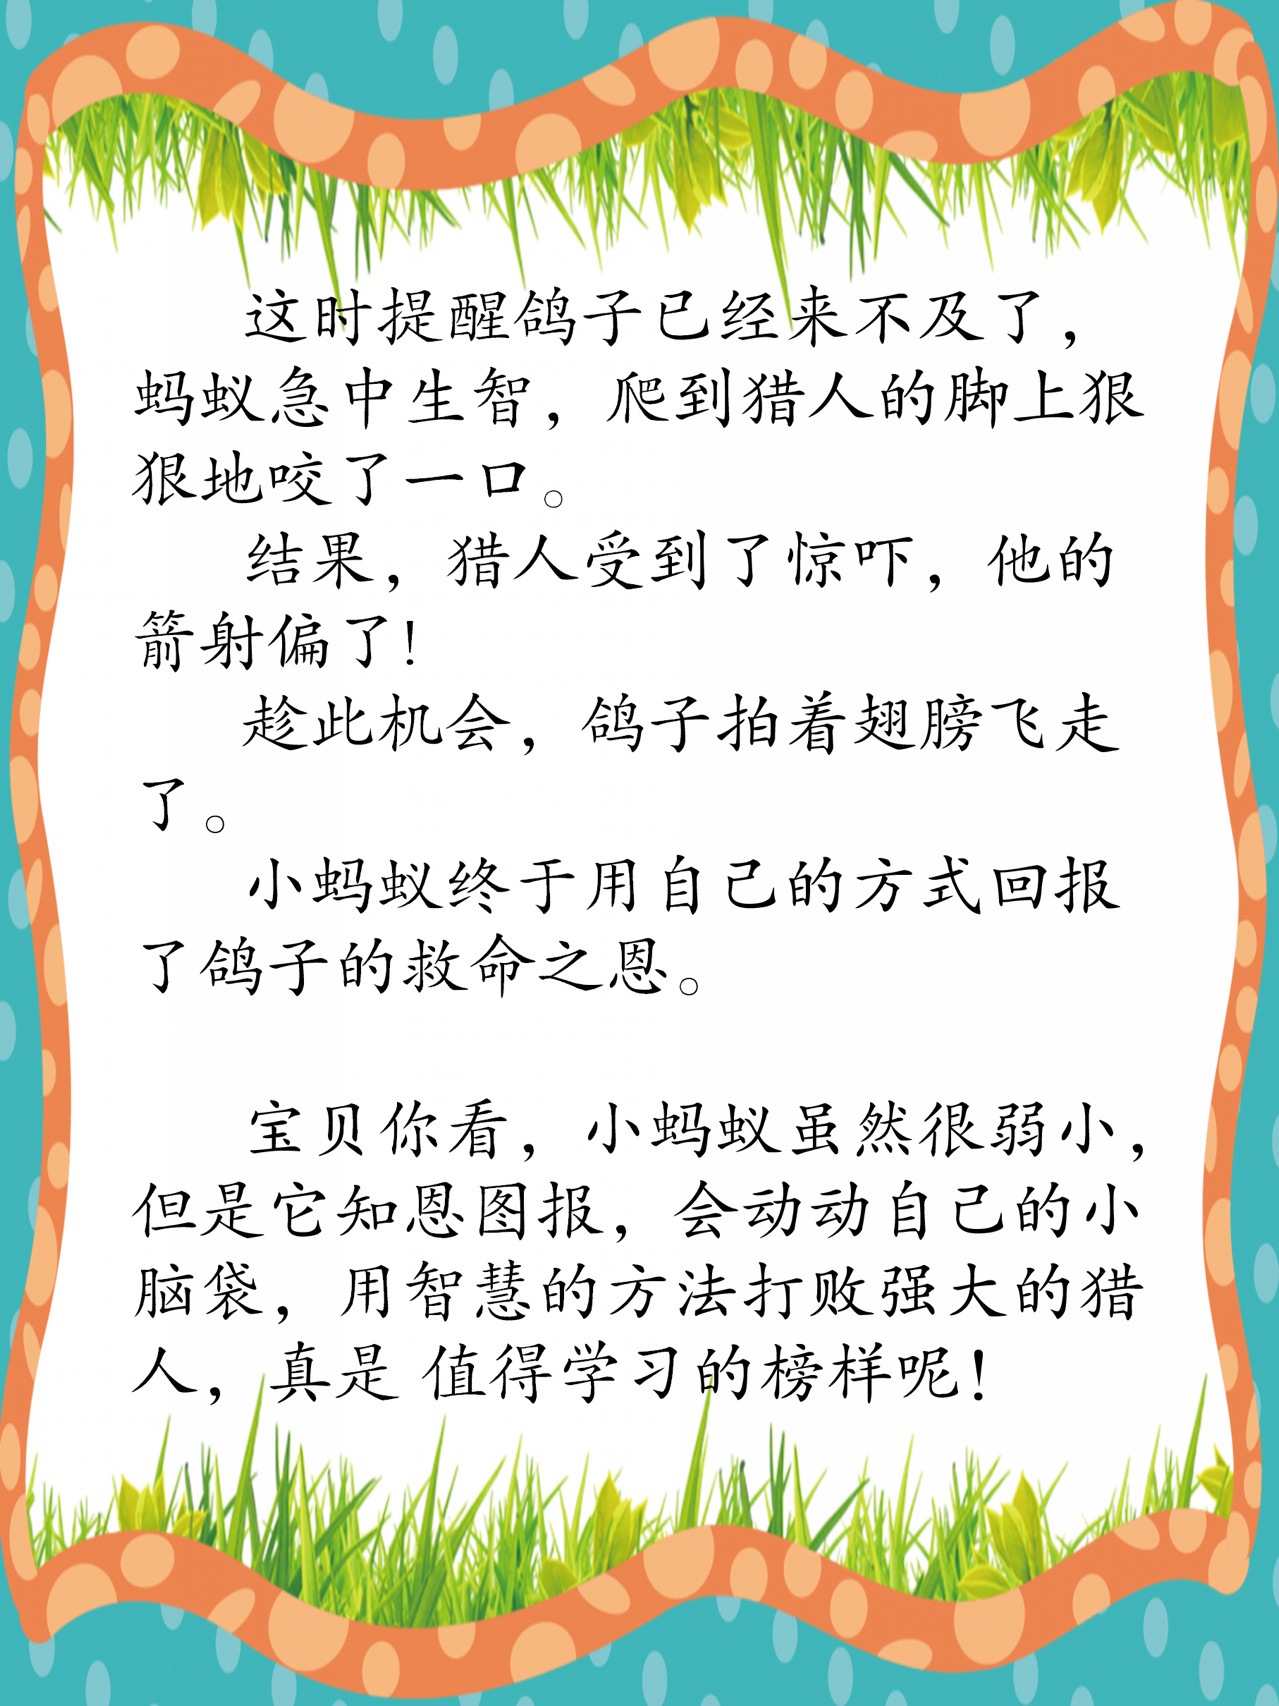 这时提醒鸽子已经来不及了，
蚂蚁急中生智，爬到猎人的脚上狠
狠地咬了一口。
结果，猎人受到了惊吓，他的
箭射偏了！
趁此机会，鸽子拍着翅膀飞走
了。
小蚂蚁终于用自己的方式回报
了鸽子的救命之恩。
宝贝你看，小蚂蚁虽然很弱小，
但是它知恩图报，会动动自己的小
脑袋，用智慧的方法打败强大的猎
人，真是 值得学习的榜样呢！